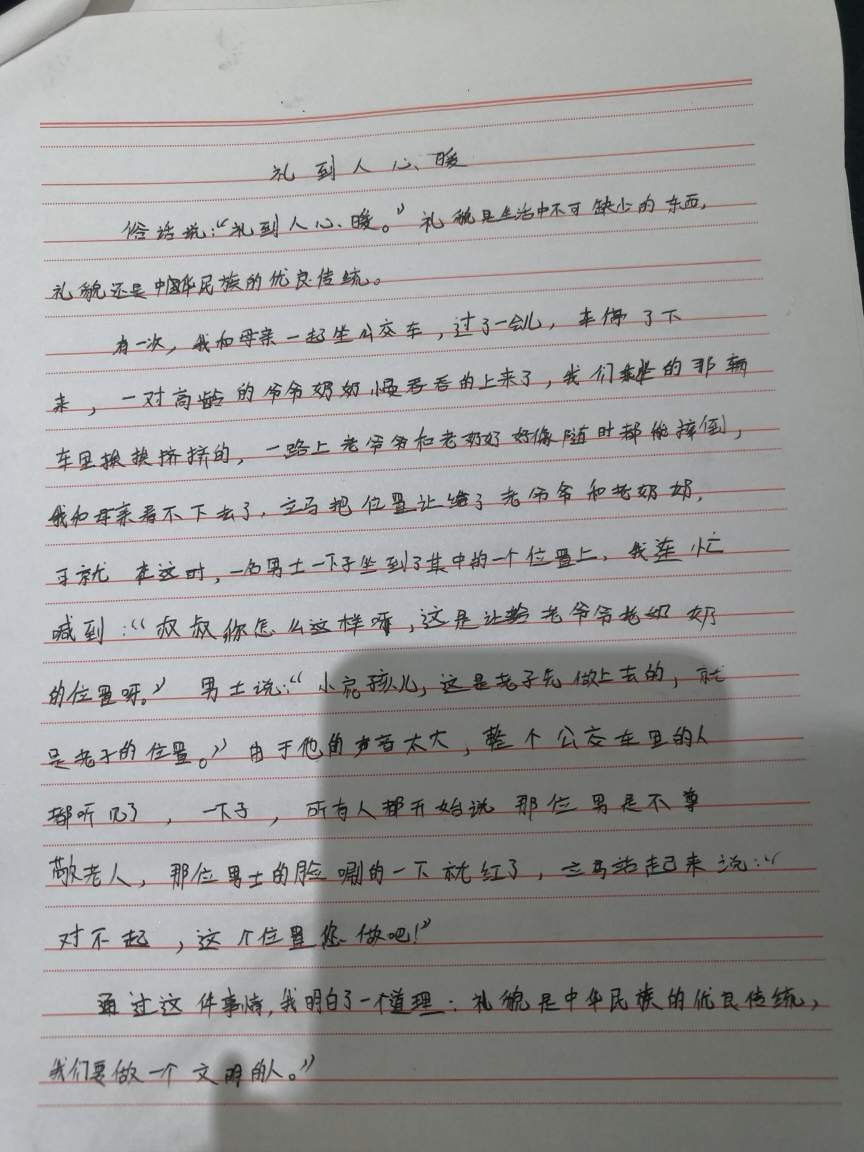 礼到人心暖
俗话说：“礼到人心暖。”礼貌是生活中不可缺少的东西，
礼貌还是中国华民族的优良传统。
有一次，我和母亲一起坐公交车，过了一会儿，车停了下
来，一对高龄的爷爷奶奶慢吞吞的上来了，我们坐的那辆
车里挨挨挤挤的，一路上老爷爷和老奶奶好像随时都能摔倒，
我和母亲看不下去了，立马把位置让给了老爷爷和老奶奶，
可就在这时，一名男士一下子坐到了其中的一个位置上，我连忙
喊到：“叔叔你怎么这样呀，这是让给老爷爷老奶奶
的位置呀。”男士说：“小屁孩儿，这是老子先做上去的，就
是老子的位置。”由于他的声音太大，整个公交车里的人
都听见了，一下子，所有人都开始说那位男是不尊
敬老人，那位男士的脸唰的一下就红了，立马站起来说：“
对不起，这个位置您做吧！”
通过这件事情，我明白了一个道理：礼貌是中华民族的优良传统，
我们要做一个文明的人。”